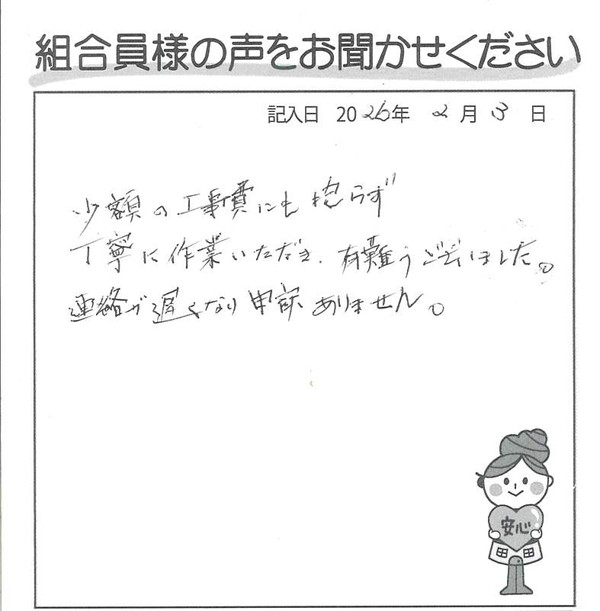 組合員様の声をお聞かせください
記入日 2026年 2月 3日
少額の工事費にも拘らず
丁寧に作業いただき、有難うございました。
連絡が遅くなり申訳ありません。
安心